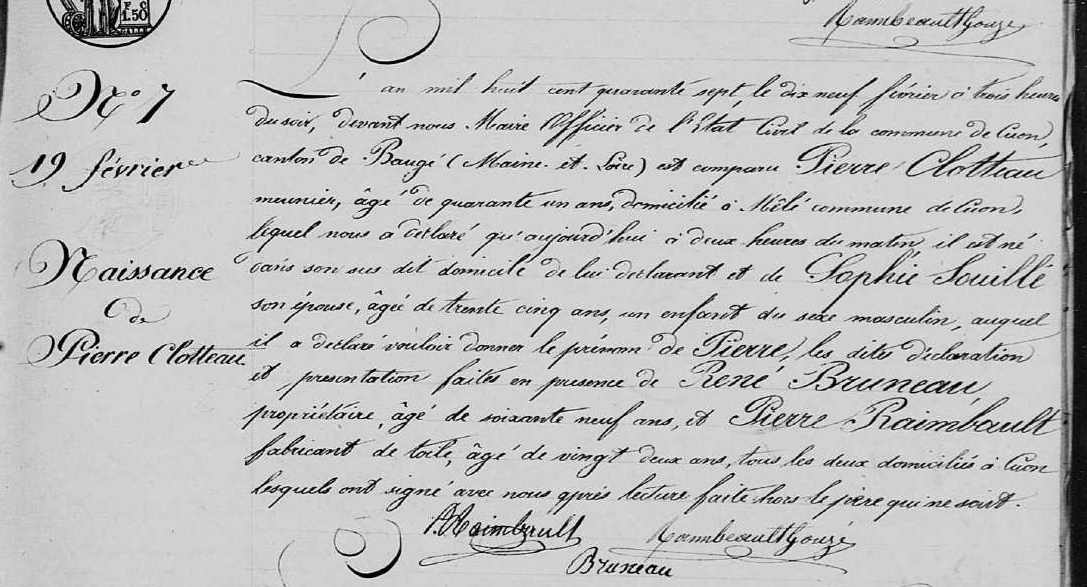 F. C
1.50
RambeaultGouzé
N° 7
19 février
Naissance
de
Pierre Clotteau
L'an mil huit cent quarante sept, le dix neuf février à trois heures
du soir, devant nous Maire Officier de l'Etat Civil de la commune de Cuon,
canton de Baugé (Maine-et-Loire) est comparu Pierre Clotteau
meunier, âgé de quarante un ans, domicilié à Mêlé commune de Cuon,
lequel nous a declaré qu'aujourd'hui à deux heures du matin, il est né
dans son sus dit domicile de lui declarant et de Sophie Souillé
son épouse, âgée de trente cinq ans, un enfant du sexe masculin, auquel
il a declaré vouloir donner le prénom de Pierre, les dites déclaration
et presentation faites en presence de René Bruneau,
propriétaire, âgé de soixante neuf ans, et Pierre Raimbault
fabricant de toile, âgé de vingt deux ans, tous les deux domiciliés à Cuon
lesquels ont signé avec nous après lecture faite hors le père qui ne sait.
P. Raimbault
RambeaultGouzé
Bruneau